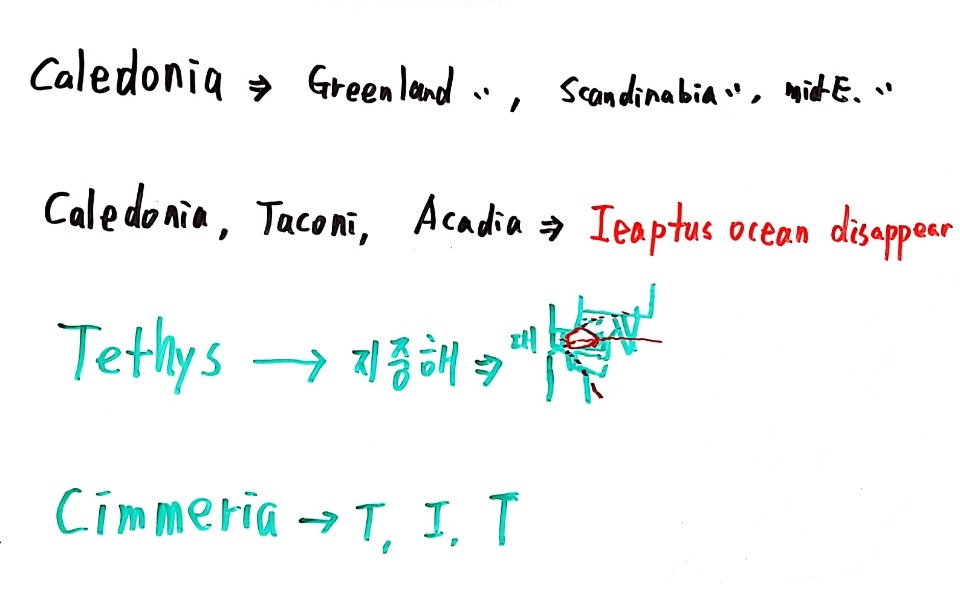 Caledonia ⇒ Greenland〃, Scandinabia〃, mid-E.〃
Caledonia, Taconi, Acadia ⇒ Ieaptus ocean disappear
Tethys → 지중해 ⇒
Cimmeria → T, I, T